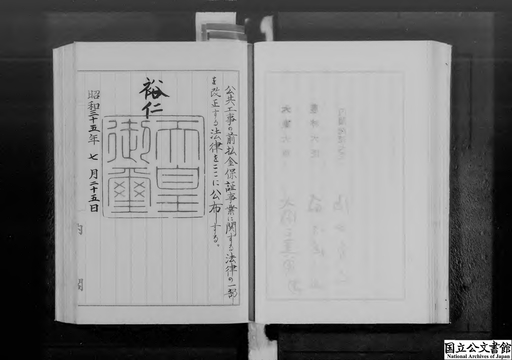 公共工事の前払金保証事業に関する法律の一部
を改正する法律をここに公布する。
裕仁
天皇
御璽
昭和三十五年七月二十五日
内閣
国立公文書館
National Archives of Japan